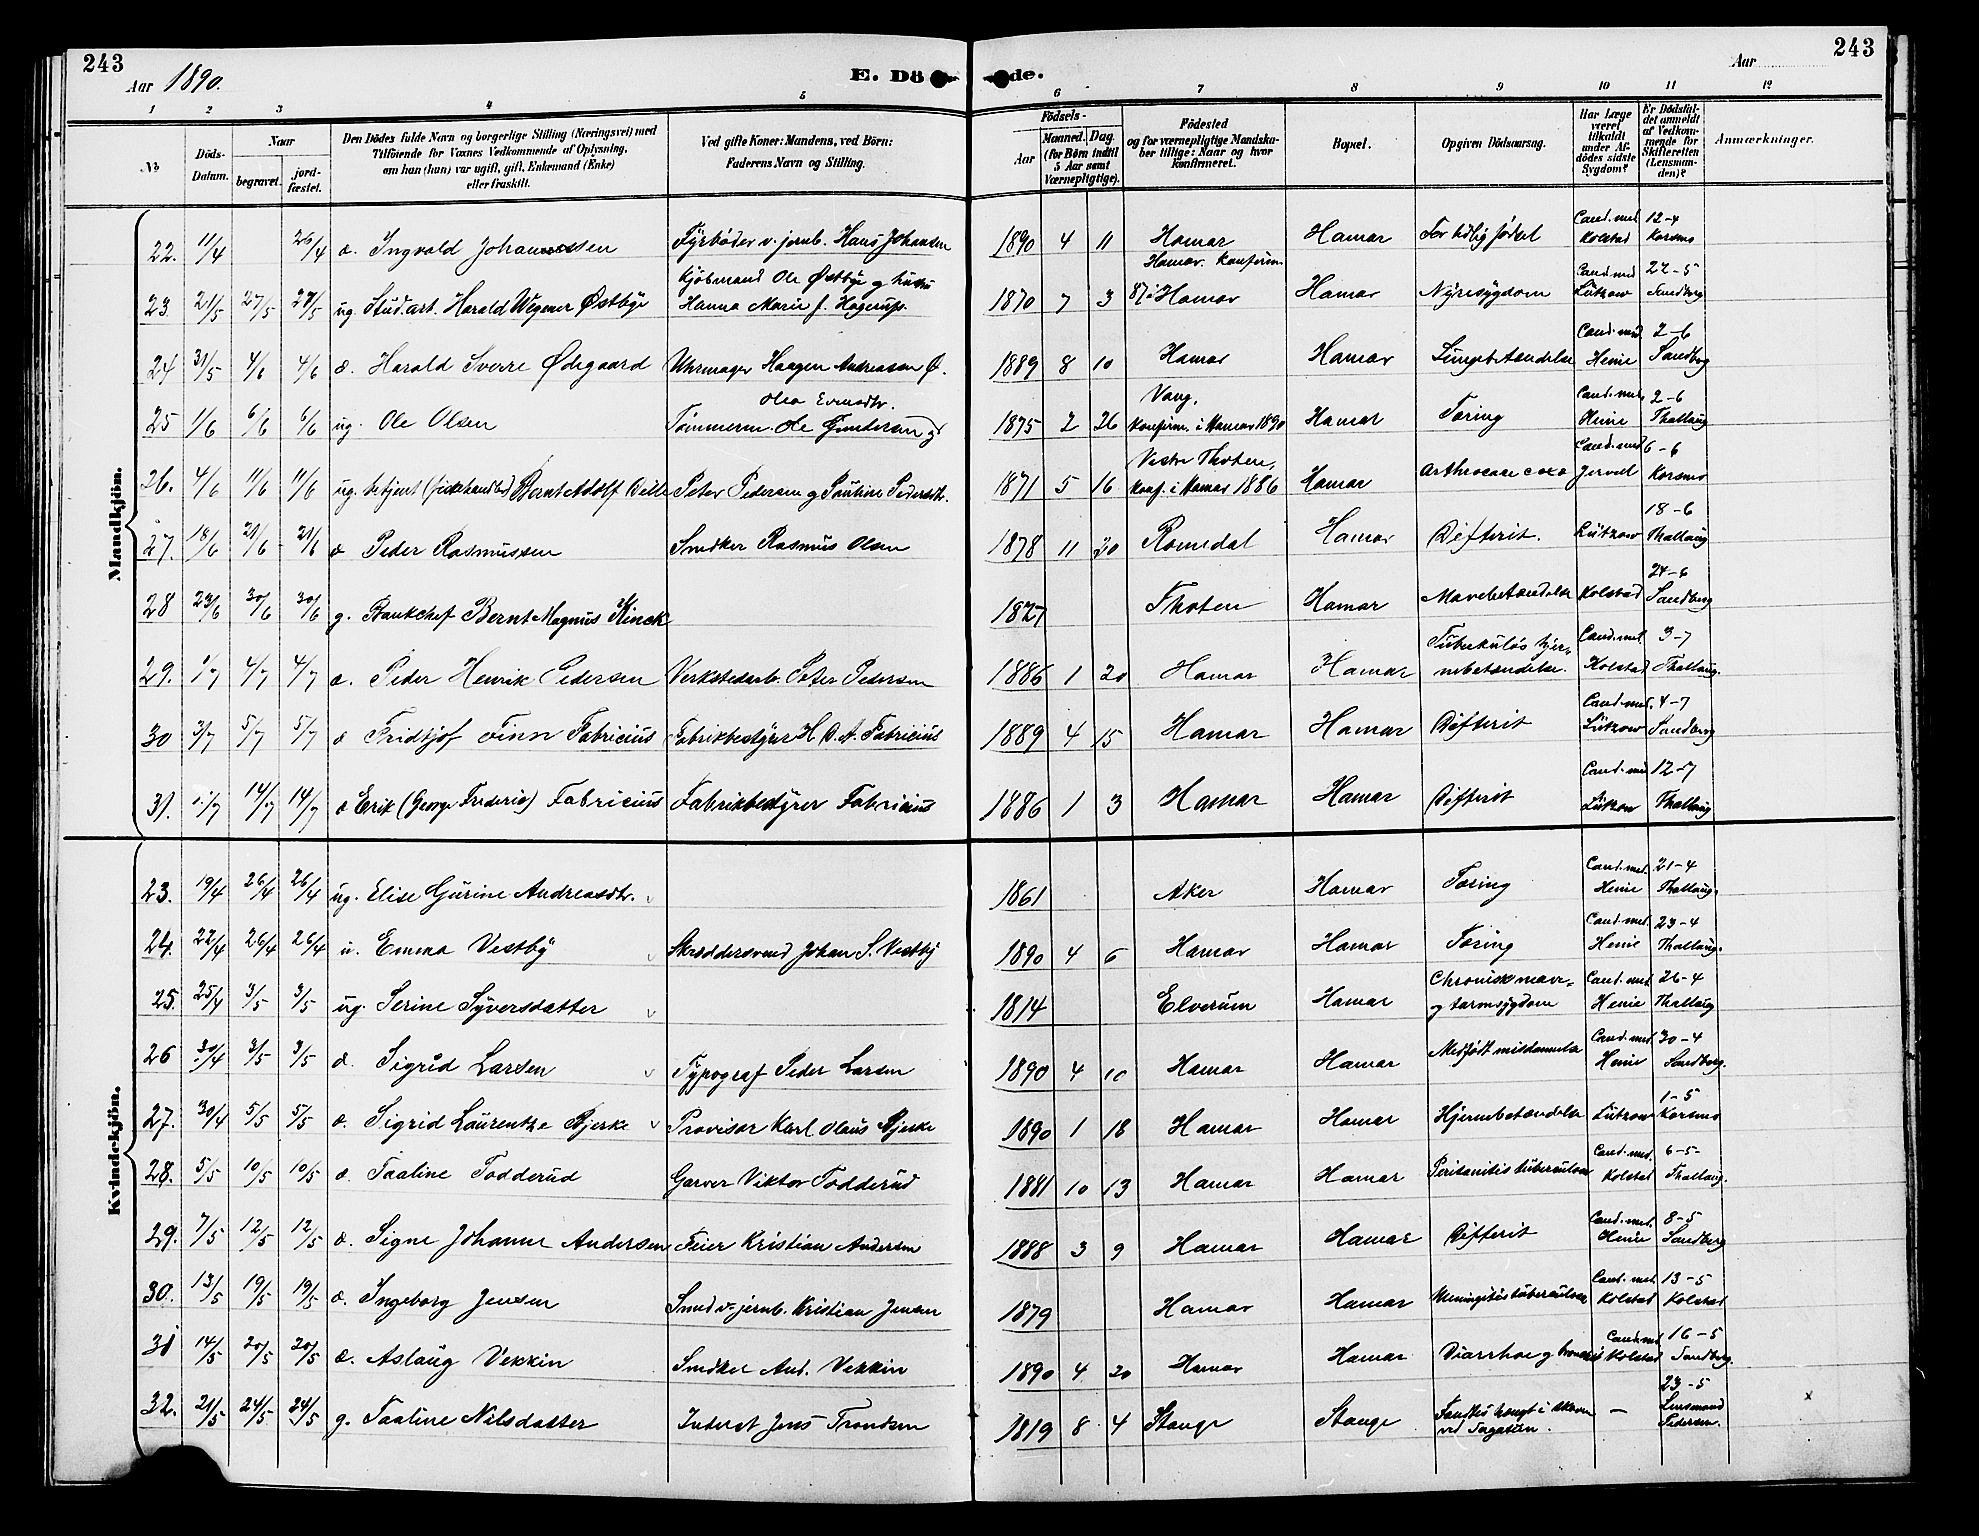 243
Aar 1890.
E. Dö
de.
Aar
243
1 2 3 4 5 6 7 8 9 10 11 12
No
Döds-Datum.
Naar
begravet.
jord-fæstet.
Den Dödes fulde Navn og borgerlige Stilling (Næringsvei) med
Tilföiende for Voxnes Vedkommende af Oplysning,
om han (hun) var ugift, gift, Enkemand (Enke)
eller fraskilt.
Ved gifte Koner: Mandens, ved Börn:
Faderens Navn og Stilling.
Födsels-
Aar
Maaned. Dag.
(for Børn indtil
5 Aar samt
Værnepligtige).
Födested
og for værnepligtige Mandska-
ber tillige: Naar og hvor
konfirmeret.
Bopæl.
Opgiven Dödsaarsag.
Har Læge
været
tilkaldt
under Af-
dödes sidste
Sygdom?
Er Dödsfal-
det anmeldt
af Vedkom-
mende for
Skifteretten
(Lensman-
den)?
Anmærkninger.
Mandkjön.
22. 11/4 26/4 æ. Ingvald Johannessen Fyrbøder v. jernb. Hans Johansen 1890 4 11 Hamar Hamar For tidlig fødsel Cand. med. Kolstad 12-4 Korsmo
23. 21/5 27/5 27/5 ug. Stud. art. Harald Wegener Østbye Kjøbmand Ole Østbye og hustru Hanna Marie f. Hagerup. 1870 7 3 Hamar. Konfirm. 87 i Hamar Hamar Nyresygdom Cand. med Lützow 22-5 Sandberg
24 31/5 4/6 4/6 æ. Harald Sverre Ødegaard Uhrmager Haagen Andreassen Ø. 1889 8 10 Hamar Hamar Lungebetændelse Cand. med. Henie 2-6 Sandberg
25 1/6 6/6 6/6 ug. Ole Olsen Tømmerm. Ole Gundersen og Olea 1875 2 26 Vang, Konfirm. i Hamar 1890 Hamar Tæring Cand. med. Henie 2-6 Thallaug
26. 4/6 11/6 11/6 ug. betjent Bernt Adolf Peter Pedersen og Pauline Pedersdtr. 1871 5 16 Vestre Thoten, Konf. i Hamar 1886 Hamar Arthrocace coxæ Cand. med Jervell 6-6 Korsmo
27. 18/6 21/6 21/6 æ Peder Rasmussen Snedker Rasmus Olsen 1878 11 20 Romedal Hamar Difterit. Lützow 18-6 Thallaug
28 23/6 30/6 30/6 g. Bankchef Bernt Magnus Kinck 1827 Thoten Hamar Mavebetændelse Kolstad 24-6 Sandberg
29. 1/7 4/7 4/7 æ. Peder Henrik Pedersen Verkstedarb. Peter Pedersen 1886 1 20 Hamar Hamar Tuberkuløs hjer-nebetændelse. Cand. med. Kolstad 3-7 Thallaug.
30 3/7 5/7 5/7 æ Fridtjof Finn Fabricius Fabrikbestyrer H. D. A. Fabricius 1889 4 15 Hamar Hamar Difterit Cand. med. Lützow 4-7 Sandberg
31. 14/7 14/7 æ Erik (George Frederic) Fabricius Fabrikbestyrer Fabricius 1886 1 3 Hamar Hamar Difterit Cand. med Lützow 12-7 Thallaug
Kvindekjön.
23. 19/4 26/4 26/4 ug. Elise Gurine Andreasdtr. 1861 Aker Hamar Tæring Cand. med. Henie 21-4 Thallaug.
24. 22/4 26/4 26/4 u. Emma Vestby Skræddersvend Johan S. Vestby 1890 4 6 Hamar Hamar Tæring Cand. med. Henie 23-4 Thallaug.
25. 25/4 3/5 3/5 ug. Serine Syversdatter 1814 Elverum Hamar Chronisk mave- og tarmsygdom Cand. med. Henie 26-4 Thallaug
26 30/4 3/5 3/5 æ. Sigrid Larsen Typograf Peder Larsen 1890 4 10 Hamar Hamar Medfødt misdannelse Cand. med. Henie 30-4 Sandberg.
27. 30/4 5/5 5/5 æ. Sigrid Laurentze Bjerke Provisor Karl Olaus Bjerke 1890 1 18 Hamar Hamar Hjernebetændelse Lützow 1-5 Korsmo
28. 5/5 10/5 10/5 æ. Taaline Todderud Garver Viktor Todderud 1881 10 13 Hamar Hamar Peritonitis tuberculosa Cand. med. Kolstad 6-5 Thallaug.
29. 7/5 12/5 12/5 æ. Signe Johanne Andersen Feier Kristian Andersen 1888 3 9 Hamar Hamar Difterit Cand. med. Henie 8-5 Sandberg
30. 13/5 19/5 19/5 æ. Ingeborg Jensen Smed v. jernb. Kristian Jensen 1879 Hamar Hamar Meningitis tuberculosa Cand. med. Kolstad 13-5 Kolstad
31 14/5 20/5 20/5 æ. Aslaug Vekkin Snedker And. Vekkin 1890 4 20 Hamar Hamar Diarrhoe og Cand. med. Kolstad 16-5 Sandberg.
32. 21/5 24/5 24/5 g. Taaline Nilsdatter Inderst Jens Trondsen 1819 8 4 Stange Stange Fandtes hængt i skoven ved — 23-5 Lensmand Pedersen. x